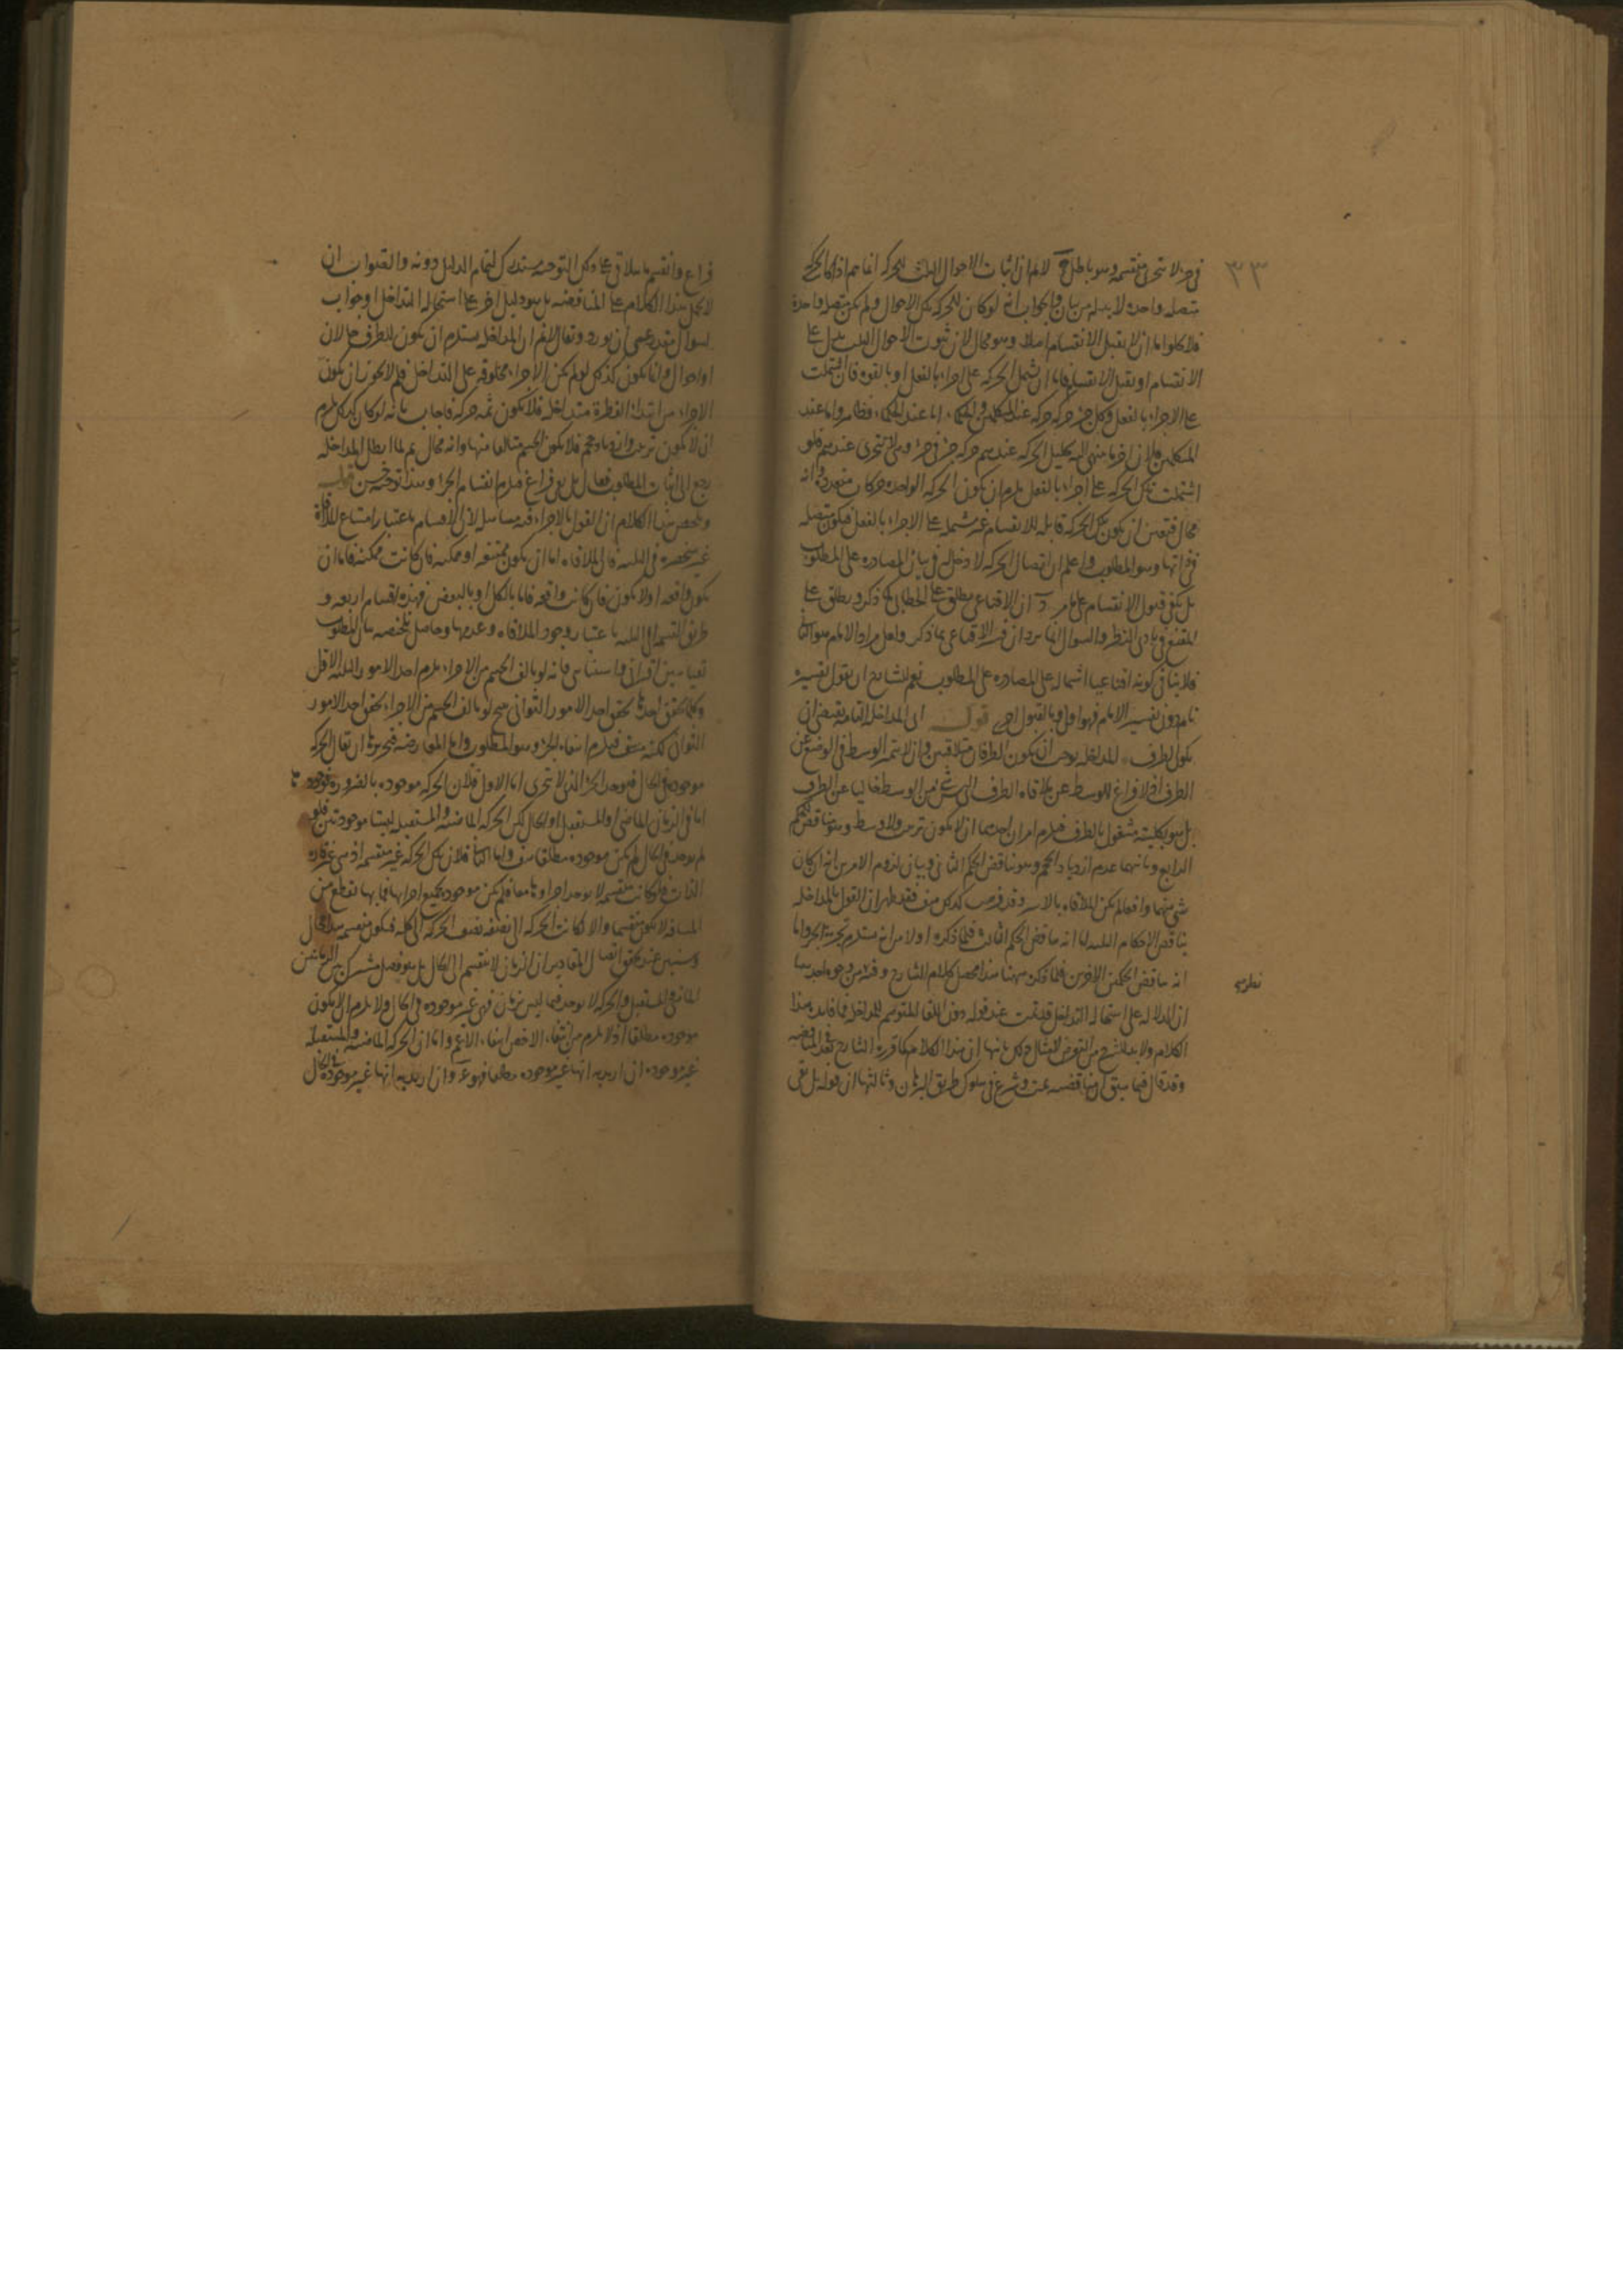 ٣٣
في جزء لا يتجزى منقسمه وهو باطل لانم ان اثبات الاحوال الثلث للحركه انما يتم اذا كان الحركه
متصله واحده لا بد له من بيان والجواب انه لو كان للحركه تلك الاحوال ولم يكن متصله واحدة
فلا يخلو اما ان لا يقبل الانقسام اصلا وهو محال لان ثبوت الاحوال الثلث يدل على
الانقسام او يقبل الانقسام فاما ان يشمل الحركه على اجزاء بالفعل او بالقوه فان اشتملت
على الاجزاء بالفعل وكل جزء حركه حركه عند المتكلمين والحكماء اما عند الحكماء فظاهر واما عند
المتكلمين فلان اخر ما ينتهى اليه تحليل الحركه عندهم حركه جزء في جزء وهي لا تتجزى عندهم فلو
اشتملت تلك الحركه على اجزاء بالفعل يلزم ان يكون الحركه الواحده حركات متعدده وانه
محال فتعين ان يكون تلك الحركه قابله للانقسام غير مشتمله على الاجزاء بالفعل فيكون متصله
في ذاتها وهو المطلوب واعلم ان اتصال الحركه لا دخل له في بيان المصادره على المطلوب
بل يكفى قبول الانقسام على ما مر ان الاقناعى يطلق على الخطابى كما ذكر ويطلق على
المقنع في بادى النظر والسوال انما يرد ان فسر الاقناعى بما ذكر ولعل مراد الامام هو الثانى
فلا ينافى كونه اقناعيا اشتماله على المصادره على المطلوب نعم للشارح ان يقول تفسيره
تام دون تفسير الامام فهو اولى وبالقبول احرى قوله اى المداخله التامه يقتضى ان
يكون الطرف المداخله يوجب ان يكون الطرفان متلاقيين وان لا يتميز الوسط في الوضع عن
الطرف اذ لا فراغ للوسط عن ملاقاه الطرف اى ليس شئ من الوسط خاليا عن الطرف
بل هو بكليته مشغول بالطرف فيلزم امران احدهما ان لا يكون ترتيب ولا وسط وهو يناقض الحكم
الرابع وثانيهما عدم ازدياد الحجم وهو يناقض الحكم الثانى وبيان لزوم الامرين انه ان كان
شئ منهما واقعا لم يكن الملاقاه بالاسر وقد فرضت كذلك هف فقد ظهر ان القول بالمداخله
يناقض الاحكام الثلثه اما انه يناقض الحكم الثالث فلما ذكره اولا من انه يستلزم تجزية الجزء واما
انه يناقض الحكمين الاخرين فلما ذكره ههنا هذا محصل كلام الشارح وفيه من وجوه احدها
نظر
ان الدلاله على استحالة التداخل قد تمت عند قوله دون اللقاء المتوهم للمداخله فما فائده هذا
الكلام ولا بد للشرح من التعرض لامثال ذلك ثانيها ان هذا الكلام كما قرره الشارح نقض المناقضه
وقد قال فيما سبق ان مناقضه تمت وشرع في سلوك طريق البرهان وثالثها ان قوله بل بقى
فراغ وانقسم ما يلاقى على ذلك التوجيه مستدرك لتمام الدليل دونه والصواب ان
لا يحمل هذا الكلام على المناقضه بل هو دليل اخر على استحالة التداخل او جواب
لسوال مقدر عسى ان يورد ويقال لانم ان المداخله يستلزم ان يكون للطرف حالان
او احوال وانما يكون كذلك لو لم يكن الاجزاء مخلوقه على التداخل فلم لا يجوز ان يكون
الاجزاء من ابتداء الفطرة متداخله فلا يكون ثمه حركه فاجاب بانه لو كان كذلك يلزم
ان لا يكون ترتيب وازدياد حجم فلا يكون الجسم متالفا منها وانه محال ثم لما ابطل المداخله
رجع الى اثبات المطلوب فقال بل بقى فراغ فيلزم انقسام الجزء وهذا توجيه حسن
وملخص هذا الكلام ان القول بالاجزاء فيه مساهله لان الاقسام باعتبار امتناع الملاقاة
غير منحصره في الثلثه فان الملاقاه اما ان يكون ممتنعه او ممكنه فان كانت ممكنه فاما ان
يكون واقعه او لا يكون فان كانت واقعه فاما بالكل او بالبعض فهذه اقسام اربعه و
طريق القسمه الى الثلثه باعتبار وجود الملاقاه وعدمها وحاصل تلخيصه بيان المطلوب
بقياسين اقترانى واستثنائى فانه لو تالف الجسم من الاجزاء يلزم احد الامور الثلثه الاول
وكلما تحقق احدها تحقق احد الامور الثوانى ينتج لو تالف الجسم من الاجزاء تحقق احد الامور
الثوانى لكنه منتف فيلزم انتفاء الجزء وهو المطلوب واما المعارضه فتحريرها ان يقال الحركه
موجوده في الحال فيوجد الجزء الذى لا يتجزى اما الاول فلان الحركه موجوده بالضروره فوجودها
اما في الزمان الماضى او المستقبل او الحال لكن الحركه الماضيه والمستقبله ليستا موجودتين فلو
لم يوجد في الحال لم يكن موجوده مطلقا هف واما الثانى فلان تلك الحركه غير منقسمه اذ هى غير قارة
الذات فلو كانت منقسمه لا يوجد اجزاؤها معا فلم يكن موجوده بجميع اجزائها فما بها تقطع من
المسافه لا يكون منقسما والا لكانت الحركه الى نصفه نصف الحركه الى كله فيكون منقسمه هذا محال
وسنبين عند تحقيق اتصال المقادير ان الزمان لا ينقسم الى الحال بل هو فصل مشترك بين الزمانين
الماضى والمستقبل والحركه لا يوجد فيما ليس بزمان فهى غير موجوده في الحال ولا يلزم ان لا يكون
موجوده مطلقا اذ لا يلزم من انتفاء الاخص انتفاء الاعم واما ان الحركه الماضيه والمستقبله
غير موجوده ان اريد به انها غير موجوده مطلقا فهو مم وان اريد به انها غير موجوده في الحال